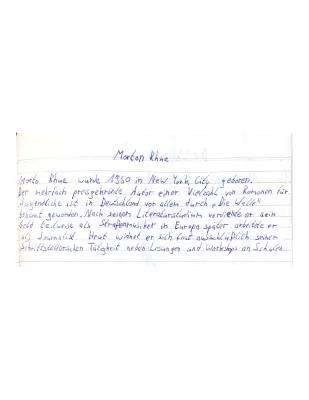 Morton Rhue
Morto Rhue wurde 1950 in New York City geboren.
Der mehrfach preisgekrönte Autor einer Vielzahl von Romanen für
Jugendliche ist in Deutschland vor allem durch „Die Welle"
bekannt geworden. Nach seinem Literaturstudium verdiente er sein
Geld teilweise als Straßenmusiker in Europa später arbeitete er
als Journalist Heut widmet er sich fast ausschließlich seiner
Schriftstellerischen Tätigkeit neben Lesungen und Workshops an Schulen.